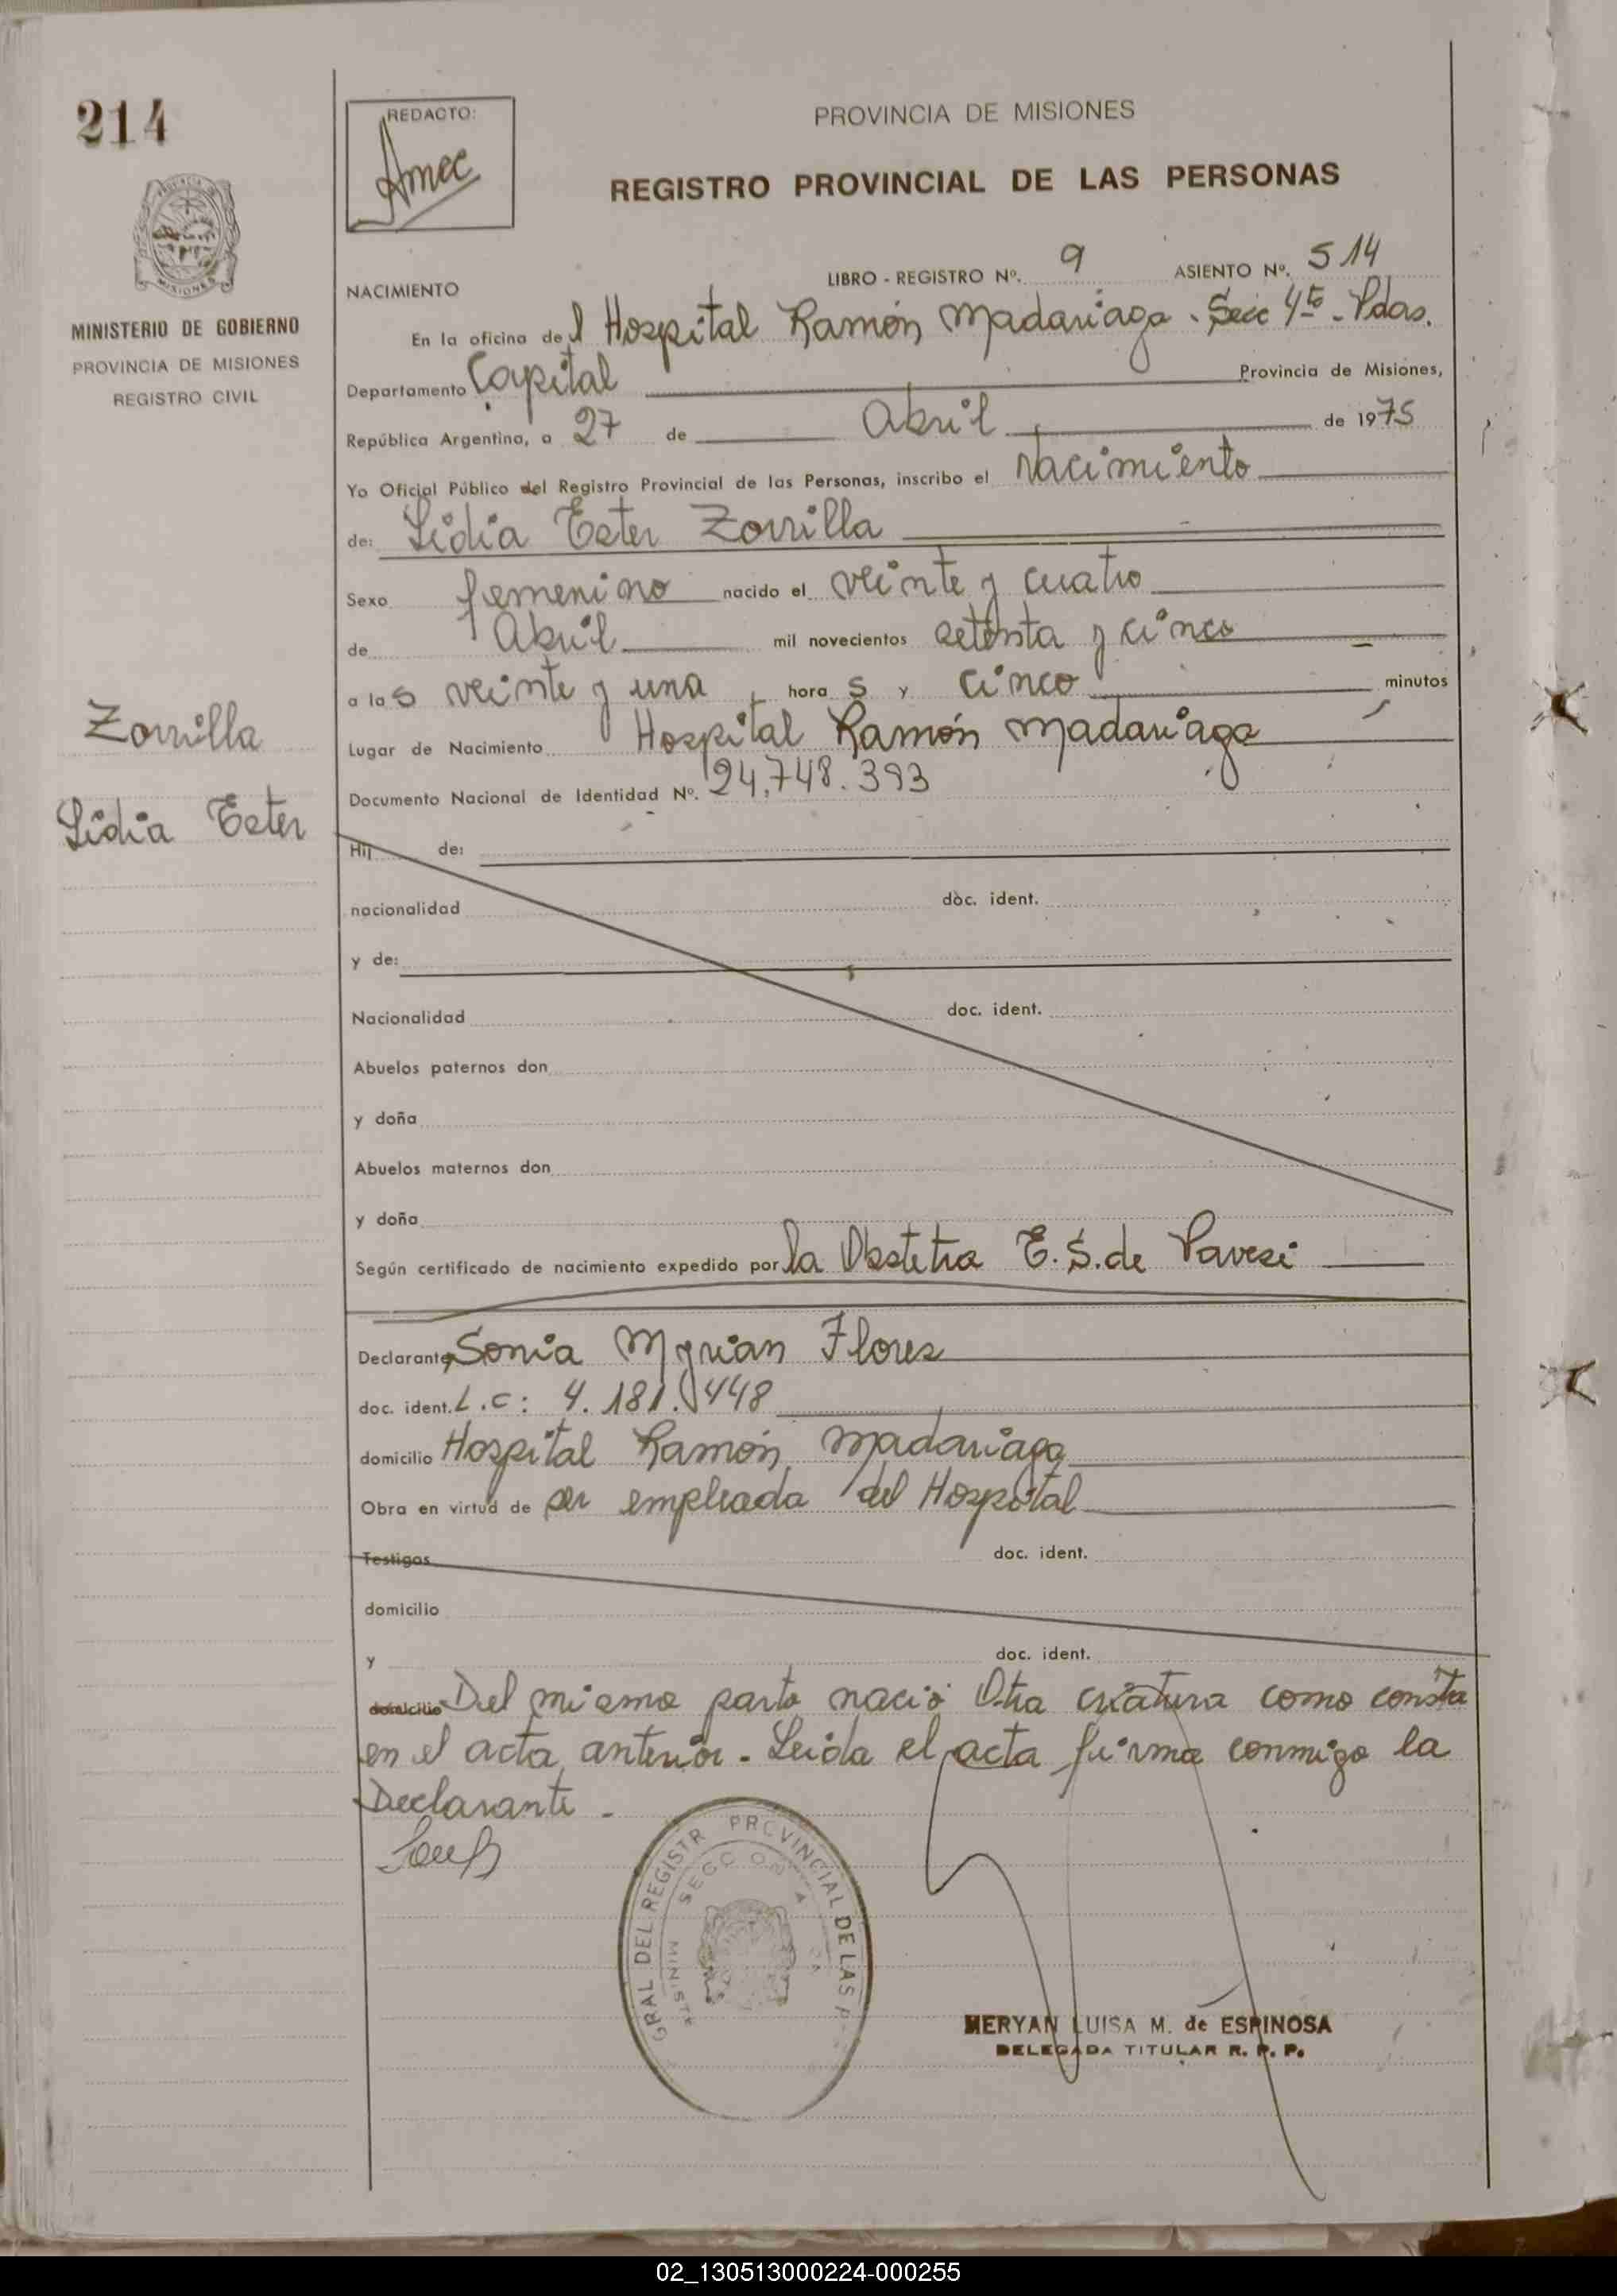 214
REDACTO:
PROVINCIA DE MISIONES
REGISTRO PROVINCIAL DE LAS PERSONAS
MISIONES
MINISTERIO DE GOBIERNO
PROVINCIA DE MISIONES
REGISTRO CIVIL
LIBRO - REGISTRO Nº. 9 ASIENTO Nº. 514
NACIMIENTO
En la oficina del Hospital Ramón Madariaga. Secc 4ta - Pdas.
Departamento Capital Provincia de Misiones,
República Argentina, a 27 de Abril de 1975
Yo Oficial Público del Registro Provincial de las Personas, inscribo el Nacimiento
de: Lidia Ester Zorrilla
Sexo femenino nacido el veinte y cuatro
de Abril mil novecientos setenta y cinco
a las veinte y una horas y cinco minutos
Zorrilla
Lidia Ester
Lugar de Nacimiento Hospital Ramón Madariaga
Documento Nacional de Identidad Nº. 24.748.393
Hij de:
nacionalidad doc. ident.
y de:
Nacionalidad doc. ident.
Abuelos paternos don
y doña
Abuelos maternos don
y doña
Según certificado de nacimiento expedido por la Obstetra E.S. de Pavesi
Declarante Sonia Myrian Flores
doc. ident. L.C: 4.181.448
domicilio Hospital Ramón Madariaga
Obra en virtud de ser empleada del Hospital
Testigos doc. ident.
domicilio
y doc. ident.
domicilio Del mismo parto nació Otra criatura como consta
en el acta anterior - Leida el acta firma conmigo la
Declarante -
GRAL DEL REGISTR PROVINCIAL DE LAS P
MINISTE
MERYAN LUISA M. de ESPINOSA
DELEGADA TITULAR R. P. P.
02_130513000224-000255